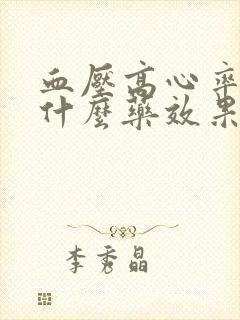 血壓高心率
什麼藥效果
李秀晶